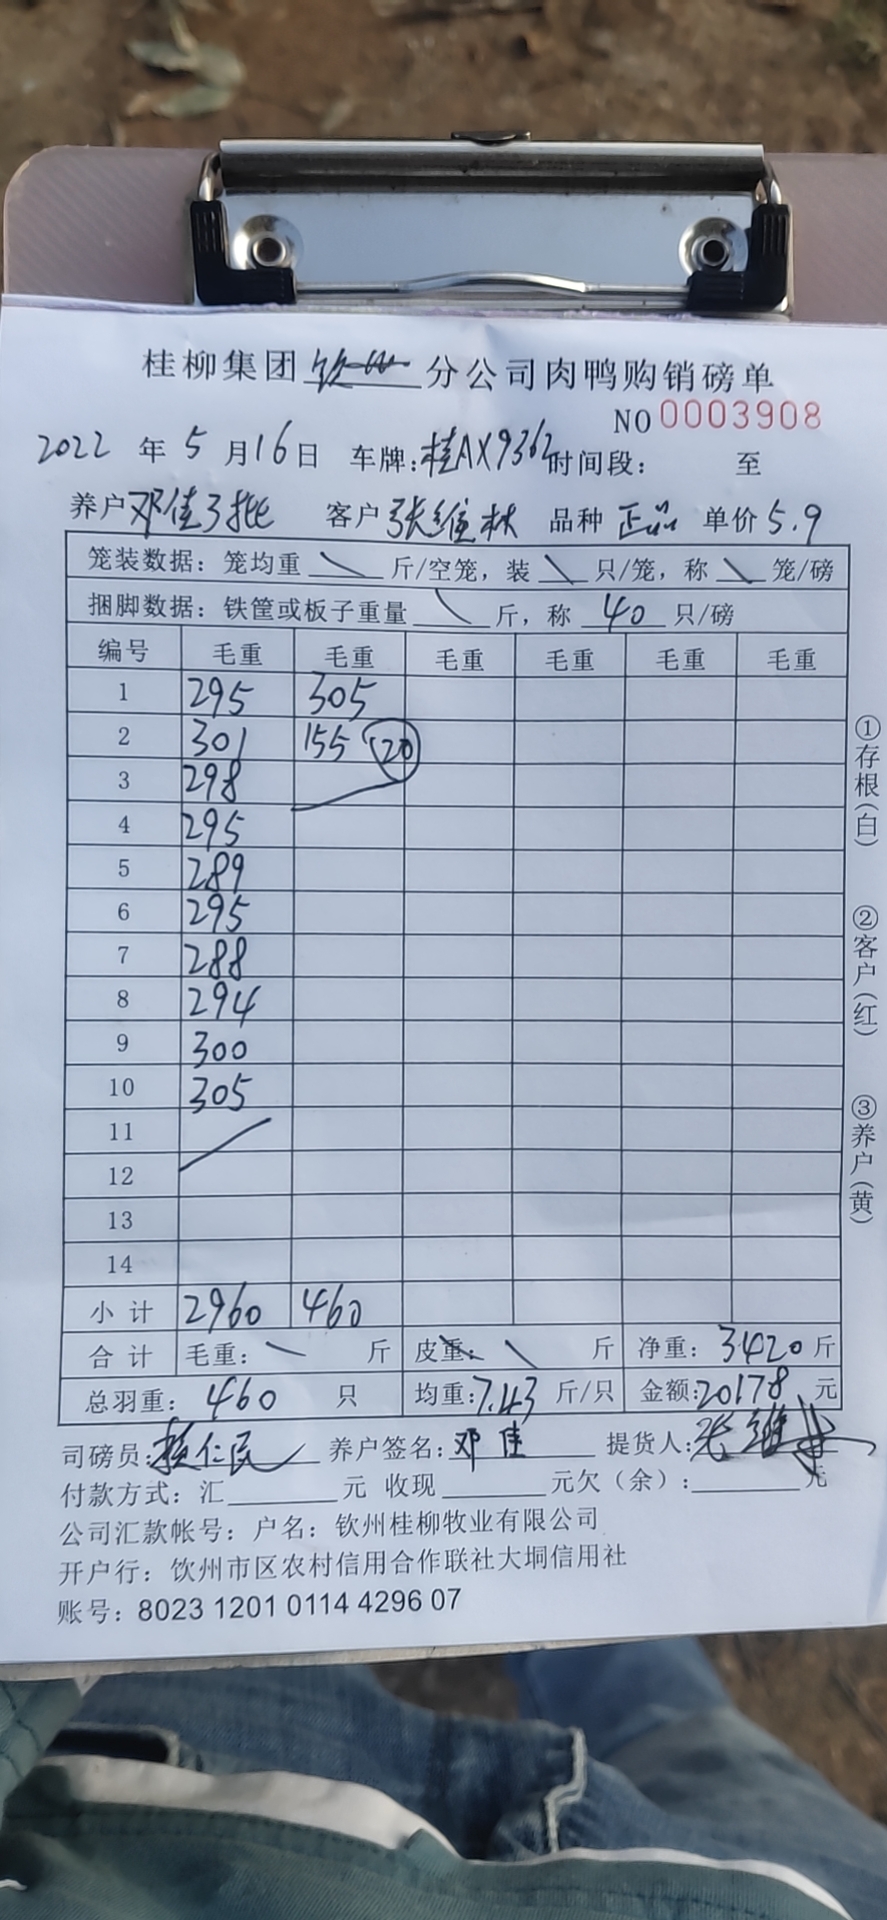 桂柳集团 钦州 分公司肉鸭购销磅单
NO 0003908
2022 年 5 月 16 日 车牌:桂AX9362 时间段: 至
养户 邓佳3批 客户 张维林 品种 正品 单价 5.9
笼装数据: 笼均重 \ 斤/空笼, 装 \ 只/笼, 称 \ 笼/磅
捆脚数据: 铁筐或板子重量 \ 斤, 称 40 只/磅
编号 毛重 毛重 毛重 毛重 毛重 毛重
1 295 305
2 301 155 20
3 298
4 295
5 289
6 295
7 288
8 294
9 300
10 305
11
12
13
14
小计 2960 460
合计 毛重: \ 斤 皮重: \ 斤 净重: 3420 斤
总羽重: 460 只 均重: 7.43 斤/只 金额: 20178 元
司磅员: 仁民 养户签名: 邓佳 提货人: 张维林
付款方式: 汇 元 收现 元欠(余): 元
公司汇款帐号: 户名: 钦州桂柳牧业有限公司
开户行: 饮州市区农村信用合作联社大垌信用社
账号: 8023 1201 0114 4296 07
①存根(白)
②客户(红)
③养户(黄)